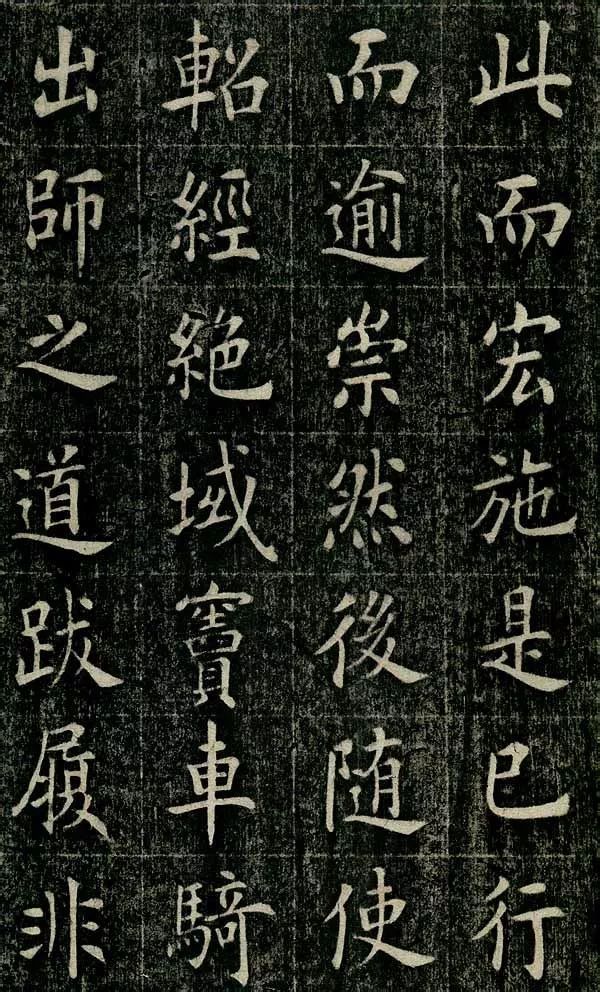 此而宏施是已行
而逾崇然後随使
軺經絶域竇車騎
出師之道跋履非